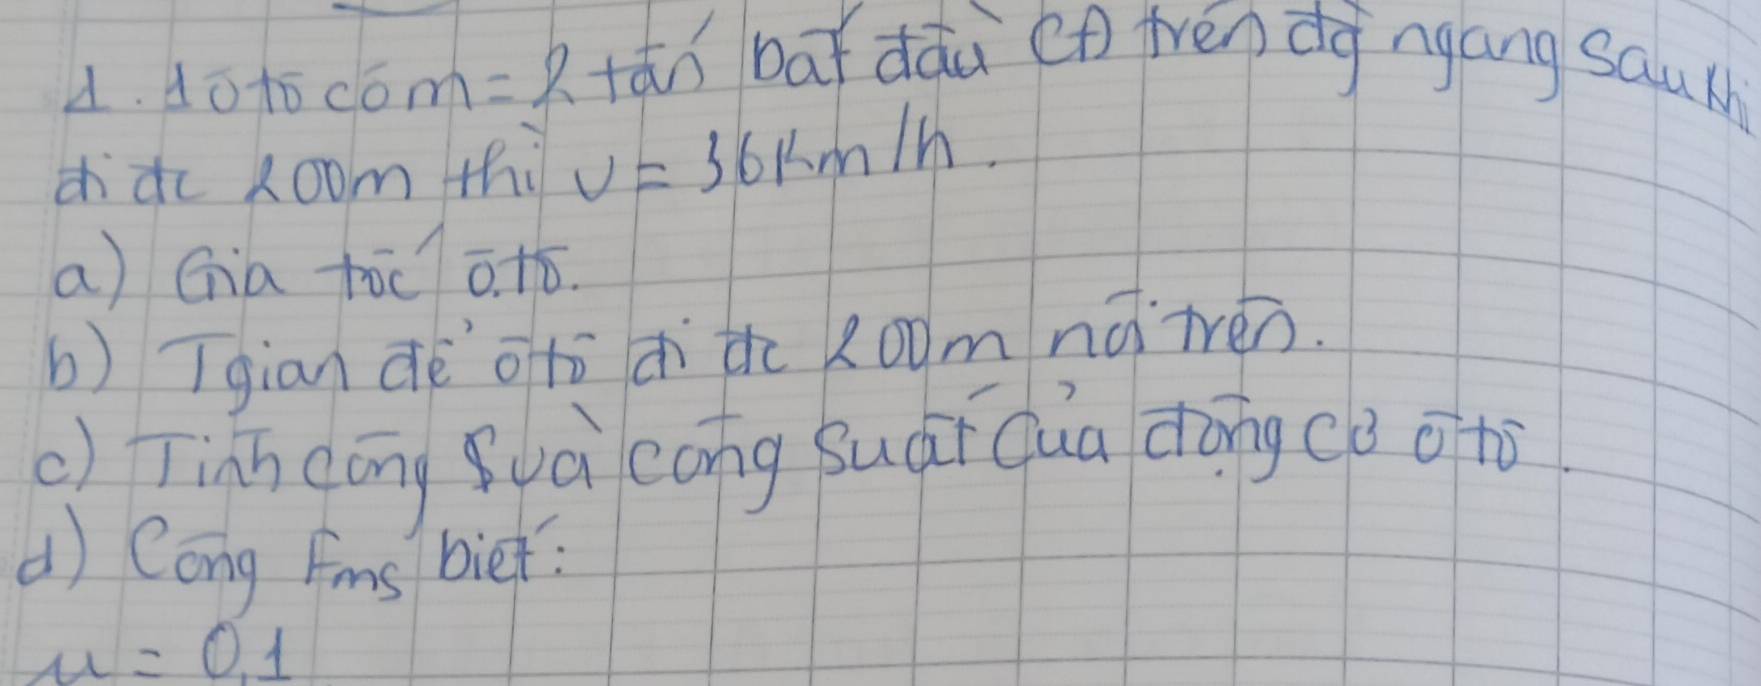 1. 1 ô tô có m = 2 tấn bắt đầu CĐ trên đg ngang sau khi
đi đc 200m thì v = 36 Km/h.
a) Gia tốc ô tô.
b) Tgian để ô tô đi đc 200m nói trên.
c) Tính công và công suất của động cơ ô tô.
d) Công Fms biết:
μ = 0,1